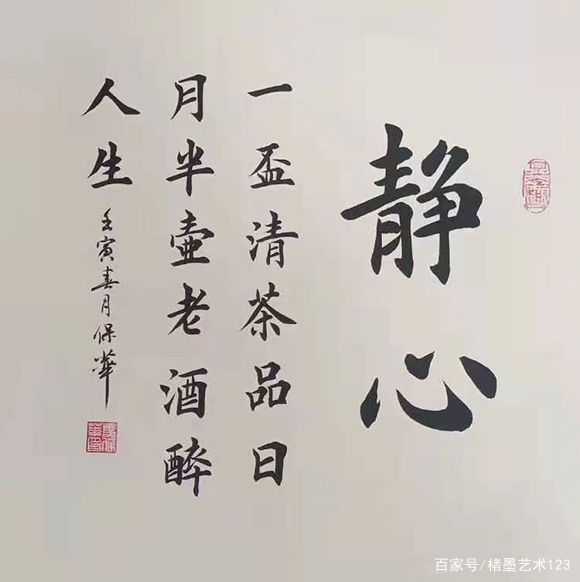 静心
一盃清茶品日
月半壶老酒醉
人生
壬寅春月保华
百家号/楮墨艺术123